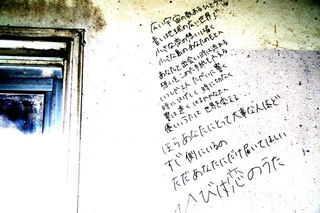 広い宇宙の数ある一つ
青い地球の広い世界で
小さな恋の想いは届く
小さな島のあなたのもとへ
あなたと出会い時は流れる
想いを込めた手紙もふえる
いつしか二人互いに響く
時に激しく 時に切なく
響くは遠く 遥か彼方へ
優しい歌は世界を変える
ほらあなたにとって大事な人ほど
すぐ側にいるの
ただあなたにだけ届いてほしい
ひびけ恋のうた